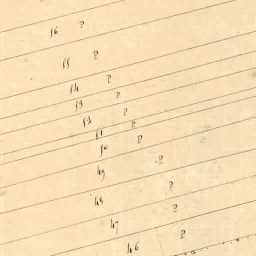 56 ?
55 ?
54 ?
53 ?
52 ?
51 ?
50 ?
49 ?
48 ?
47 ?
46 ?